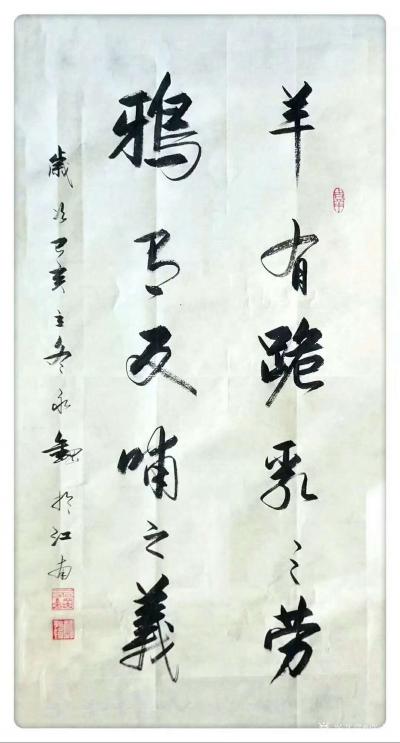 羊有跪乳之劳
鸦有反哺之義
歲次己亥立冬永於江南